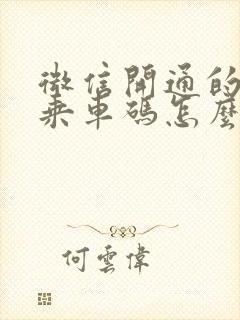 微信開通的
乘車碼怎麼
何雲偉